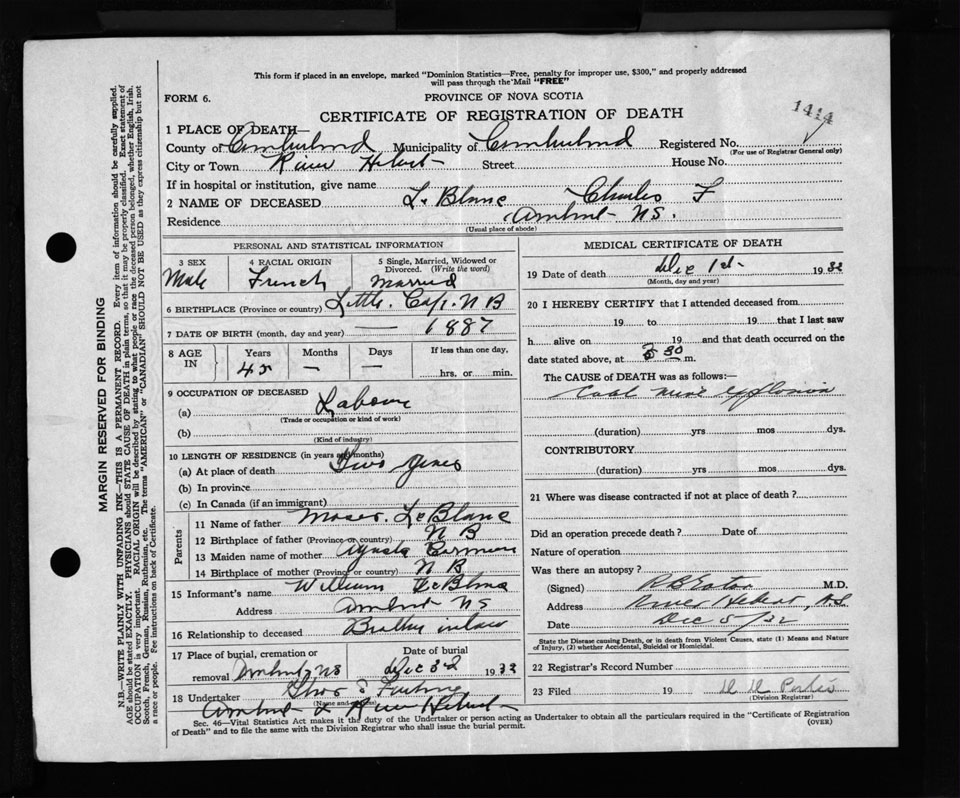 This form if placed in an envelope, marked "Dominion Statistics—Free, penalty for improper use, $300," and properly addressed
will pass through the Mail "FREE"
FORM 6.
PROVINCE OF NOVA SCOTIA
1414
CERTIFICATE OF REGISTRATION OF DEATH
1 PLACE OF DEATH—
County of Cumberland Municipality of Cumberland Registered No.
(For use of Registrar General only)
City or Town River Hebert Street House No.
If in hospital or institution, give name
2 NAME OF DECEASED LeBlanc Charles F
Residence Amherst NS.
(Usual place of abode)
PERSONAL AND STATISTICAL INFORMATION
3 SEX 4 RACIAL ORIGIN 5 Single, Married, Widowed or Divorced. (Write the word)
Male French Married
6 BIRTHPLACE (Province or country) Little Cape N B
7 DATE OF BIRTH (month, day and year) — 1887
8 AGE IN Years Months Days If less than one day,
45 — — hrs. or min.
9 OCCUPATION OF DECEASED
(a) Laborer
(Trade or occupation or kind of work)
(b)
(Kind of industry)
10 LENGTH OF RESIDENCE (in years and months)
(a) At place of death Two years
(b) In province
(c) In Canada (if an immigrant)
Parents
11 Name of father LeBlanc
12 Birthplace of father (Province or country) N B
13 Maiden name of mother
14 Birthplace of mother (Province or country) N B
15 Informant's name William LeBlanc
Address Amherst NS
16 Relationship to deceased Brother in law
17 Place of burial, cremation or removal Amherst, NS Date of burial Dec 1932
18 Undertaker
(Name and address)
Amherst & River Hebert
MEDICAL CERTIFICATE OF DEATH
19 Date of death Dec 1st 1932
(Month, day and year)
20 I HEREBY CERTIFY that I attended deceased from
19 to 19 that I last saw
h alive on 19 and that death occurred on the
date stated above, at 30 m.
The CAUSE of DEATH was as follows:—
Coal mine explosion
(duration) yrs mos dys.
CONTRIBUTORY
(duration) yrs mos dys.
21 Where was disease contracted if not at place of death?
Did an operation precede death? Date of
Nature of operation
Was there an autopsy?
(Signed) Eaton M.D.
Address River Hebert, N.S.
Date Dec 5/32
State the Disease causing Death, or in death from Violent Causes, state (1) Means and Nature
of Injury, (2) whether Accidental, Suicidal or Homicidal.
22 Registrar's Record Number
23 Filed 19
(Division Registrar)
Sec. 46—Vital Statistics Act makes it the duty of the Undertaker or person acting as Undertaker to obtain all the particulars required in the "Certificate of Registration
of Death" and to file the same with the Division Registrar who shall issue the burial permit. (OVER)
MARGIN RESERVED FOR BINDING
N.B.—WRITE PLAINLY WITH UNFADING INK—THIS IS A PERMANENT RECORD. Every item of information should be carefully supplied.
AGE should be stated EXACTLY. PHYSICIANS should STATE CAUSE OF DEATH in plain terms, so that it may be properly classified. Exact statement of
OCCUPATION is very important. RACIAL ORIGIN will be described by stating to what people or race the deceased person belonged, whether English, Irish,
Scotch, French, German, Russian, Ruthenian, etc. The terms "AMERICAN" or "CANADIAN" SHOULD NOT BE USED as they express citizenship but not
a race or people. See instructions on back of Certificate.